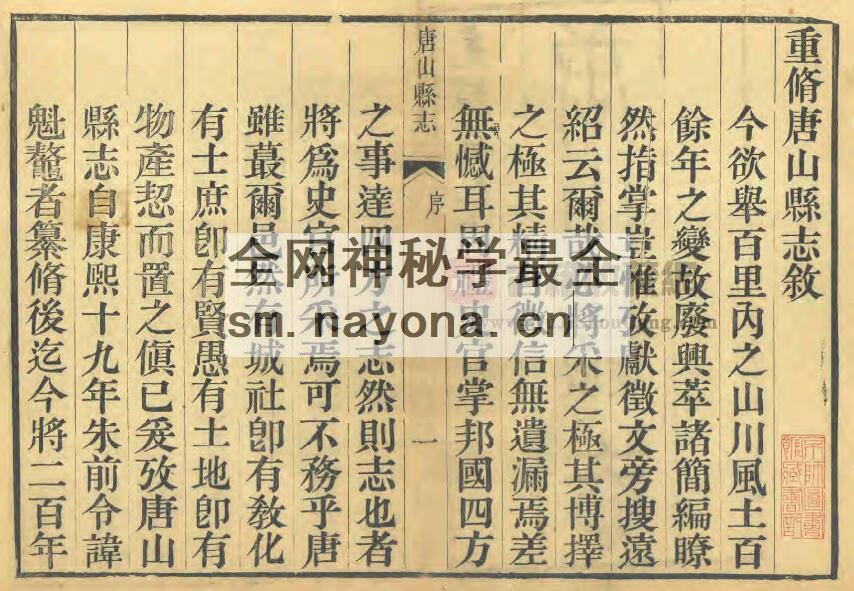 重脩唐山縣志敘
今欲舉百里內之山川風土百
餘年之變故廢興萃諸簡編瞭
然指掌豈惟攷獻徵文旁搜遠
紹云爾哉將采之極其博擇
之極其精徵信無遺漏焉差
無憾耳周禮史官掌邦國四方
唐山縣志 序 一
之事達四方之志然則志也者
將爲史官所采焉可不務乎唐
雖蕞爾邑然有城社卽有敎化
有士庶卽有賢愚有土地卽有
物產恝而置之傎已爰攷唐山
縣志自康熙十九年朱前令諱
魁鼇者纂脩後迄今將二百年
全网神秘学最全
sm.nayona.cn
京師圖書館藏書記